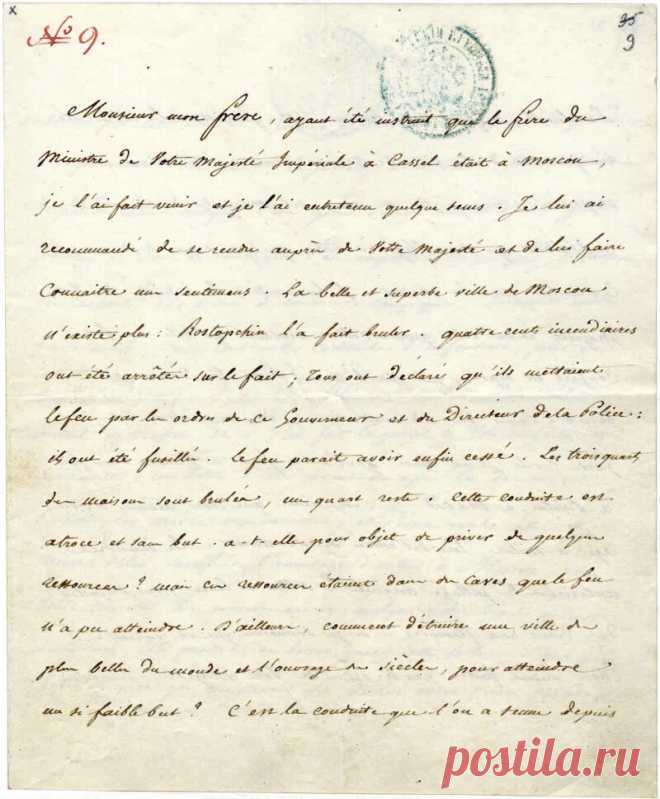 x
№ 9.
35
9
Monsieur mon frère, ayant été instruit que le frère du
Ministre de Votre Majesté Impériale à Cassel était à Moscou,
je l'ai fait venir et je l'ai entretenu quelque tems. Je lui ai
recommandé de se rendre auprès de Votre Majesté et de lui faire
Connaitre mes sentimens. La belle et superbe ville de Moscou
n'existe plus : Rostopchin l'a fait bruler. quatre cents incendiaires
ont été arrêtés sur le fait ; Tous ont déclaré qu'ils mettaient
le feu par les ordres de ce Gouverneur et du Directeur de la Police :
ils ont été fusillés. le feu parait avoir enfin cessé. Les trois quarts
des maisons sont brulées, un quart reste. Cette conduite est
atroce et sans but. a-t-elle pour objet de priver de quelques
ressources ? mais ces ressources étaient dans des caves que le feu
n'a pu atteindre. D'ailleurs, comment détruire une ville des
plus belles du monde et l'ouvrage des siècles, pour atteindre
un si faible but ? C'est la conduite que l'on a tenue depuis
postila.ru